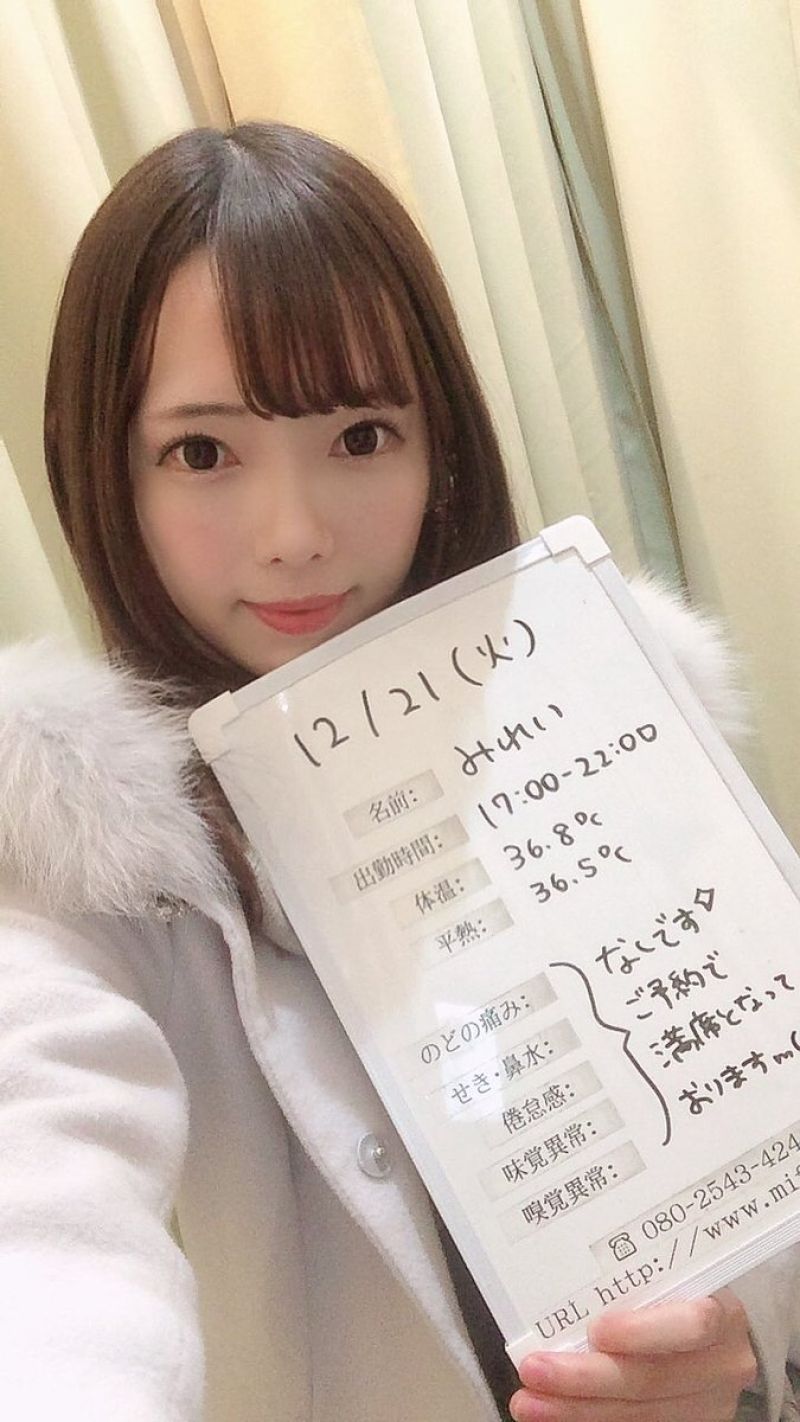 12/21(火)
名前: みれい
出勤時間: 17:00-22:00
体温: 36.8℃
平熱: 36.5℃
のどの痛み:
せき・鼻水:
倦怠感:
味覚異常:
嗅覚異常:
なしです◇
ご予約で
満席となって
おりますm(
☎ 080-2543-424
URL http://www.mif